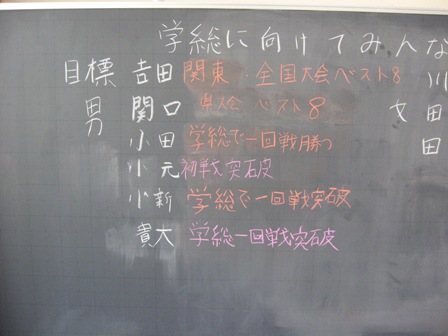 学総に向けてみんな
目標 吉田 関東・全国大会ベスト8
男 関口 県大会 ベスト8
小田 学総で一回戦勝つ
小元 初戦突破
小新 学総で一回戦突破
貴大 学総一回戦突破
川
女 田
田